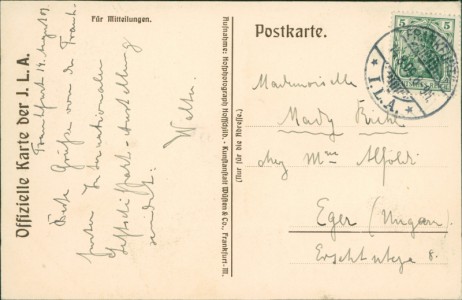 Offizielle Karte der J. L. A.
Für Mitteilungen.
Frankfurt 14. August 09
Grüße von der Frank-
furter Internationalen
Luftschiffahrt-Ausstellung
sendet
Walter.
Aufnahme: Hofphotograph · Kunstanstalt Wüsten & Co., Frankfurt-M.
(Nur für die Adresse)
Postkarte.
5 5
FRANKFURT
* I. L. A. *
Mademoiselle
Mady
chez Mme Alföldi
Eger (Ungarn)
8.